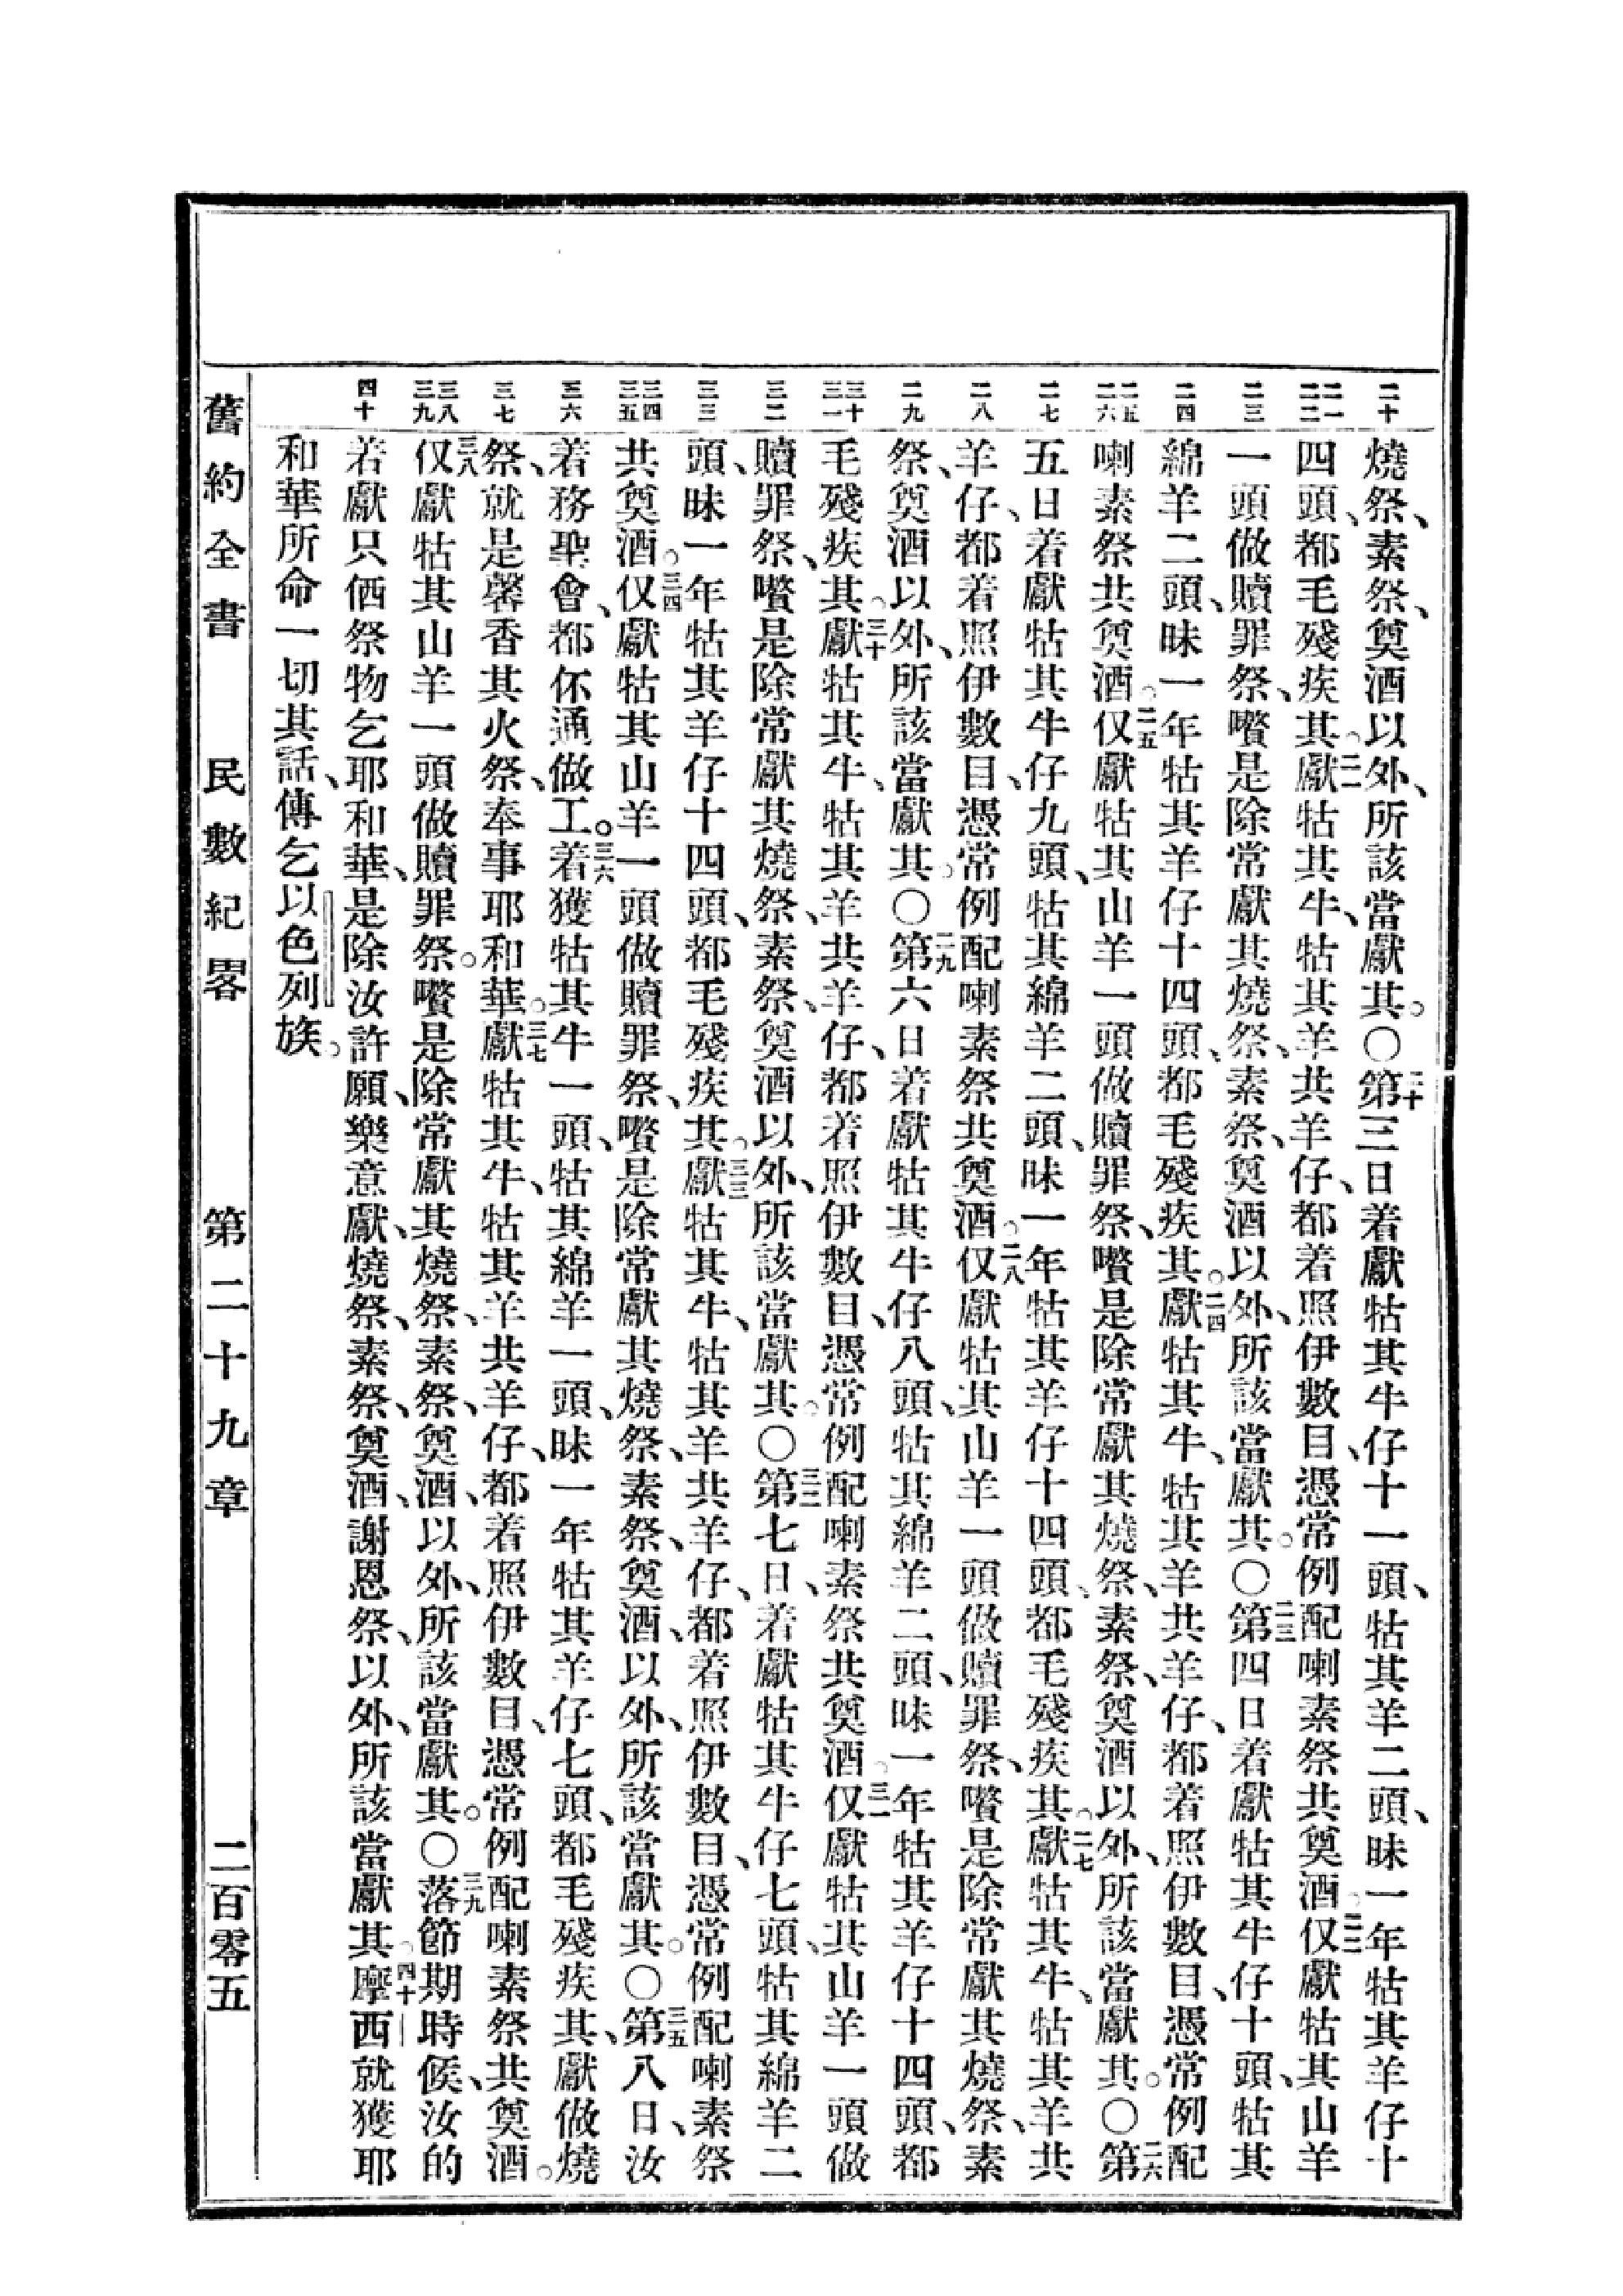 二十 燒祭、素祭、奠酒以外、所該當獻其。〇二十第三日着獻牯其牛仔十一頭、牯其羊二頭、昧一年牯其羊仔十
二一 二二 四頭、都毛殘疾其。二一獻牯其牛、牯其羊共羊仔、都着照伊數目、憑常例配喇素祭共奠酒。二二仅獻牯其山羊
二三 一頭做贖罪祭、嚽是除常獻其燒祭、素祭、奠酒以外、所該當獻其。〇二三第四日着獻牯其牛仔十頭、牯其
二四 綿羊二頭、昧一年牯其羊仔十四頭、都毛殘疾其。二四獻牯其牛、牯其羊共羊仔、都着照伊數目、憑常例配
二五 二六 喇素祭共奠酒。二五仅獻牯其山羊一頭做贖罪祭、嚽是除常獻其燒祭、素祭、奠酒以外、所該當獻其。〇二六第
二七 五日着獻牯其牛仔九頭、牯其綿羊二頭、昧一年牯其羊仔十四頭、都毛殘疾其。二七獻牯其牛、牯其羊共
二八 羊仔、都着照伊數目、憑常例配喇素祭共奠酒。二八仅獻牯其山羊一頭做贖罪祭、嚽是除常獻其燒祭、素
二九 祭、奠酒以外、所該當獻其。〇二九第六日着獻牯其牛仔八頭、牯其綿羊二頭、昧一年牯其羊仔十四頭、都
三十 三一 毛殘疾其。三十獻牯其牛、牯其羊共羊仔、都着照伊數目、憑常例配喇素祭共奠酒。三一仅獻牯其山羊一頭做
三二 贖罪祭、嚽是除常獻其燒祭、素祭、奠酒以外、所該當獻其。〇三二第七日、着獻牯其牛仔七頭、牯其綿羊二
三三 頭、昧一年牯其羊仔十四頭、都毛殘疾其。三三獻牯其牛、牯其羊共羊仔、都着照伊數目、憑常例配喇素祭
三四 三五 共奠酒。三四仅獻牯其山羊一頭做贖罪祭、嚽是除常獻其燒祭、素祭、奠酒、以外、所該當獻其。〇三五第八日、汝
三六 着務聖會、都伓通做工。三六着獲牯其牛一頭、牯其綿羊一頭、昧一年牯其羊仔七頭、都毛殘疾其、獻做燒
三七 祭、就是馨香其火祭、奉事耶和華。三七獻牯其牛、牯其羊共羊仔、都着照伊數目、憑常例配喇素祭共奠酒。
三八 三九 三八仅獻牯其山羊一頭做贖罪祭。嚽是除常獻其燒祭、素祭、奠酒、以外、所該當獻其。〇三九落節期時候、汝的
四十 若獻只𠆧祭物乞耶和華、是除汝許願、樂意獻、燒祭、素祭、奠酒、謝恩祭、以外、所該當獻其。四十摩西就獲耶
和華所命一切其話、傳乞以色列族。
舊約全書 民數紀畧 第二十九章 二百零五